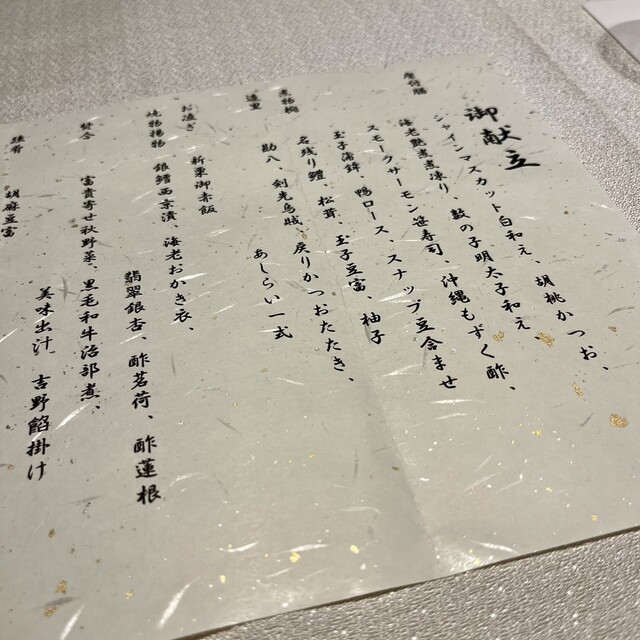 御献立
座付膳
シャインマスカット白和え、胡桃かつお、
海老艶煮煮凍り、数の子明太子和え
スモークサーモン笹寿司、沖縄もずく酢、
玉子蒲鉾、鴨ロース、スナップ豆含ませ
煮物椀
名残り鱧、松茸、玉子豆富、柚子
造里
勘八、剣先烏賊、戻りかつおたたき、
あしらい一式
お凌ぎ
新栗御赤飯
焼物揚物
銀鱈西京漬、海老おかき衣、
翡翠銀杏、酢茗荷、酢蓮根
焚合
富貴寄せ秋野菜、黒毛和牛治部煮、
美味出汁、吉野餡掛け
強肴
胡麻豆富